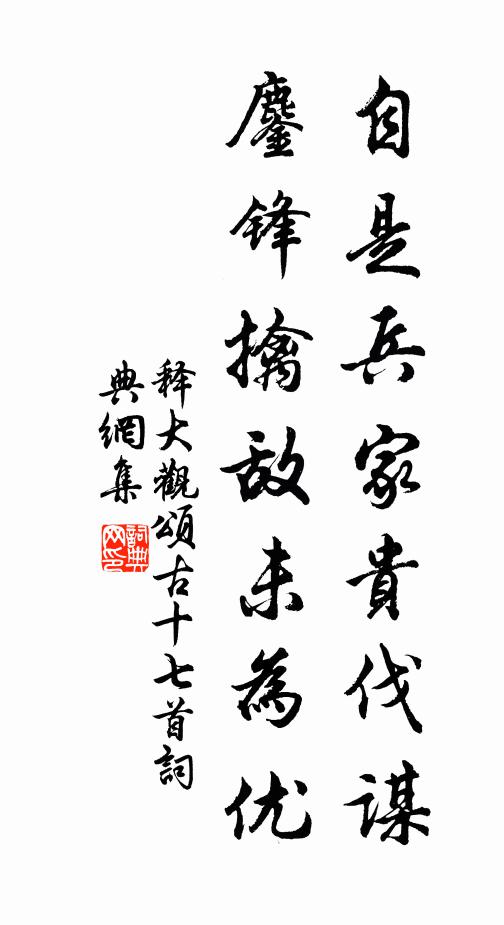 自是兵家貴伐謀
鏖锋擒敌未為优
释大觀頌古十七首詞
典網集
詞典
网印